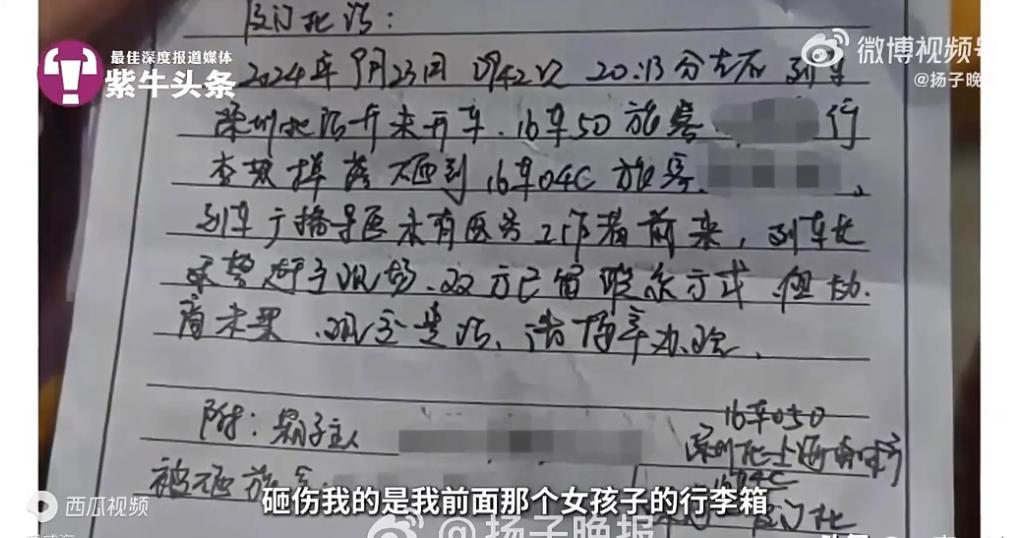 厦门北站：
最佳深度报道媒体
紫牛头条
微博视频号
@扬子晚
2024年9月23日 D942次 20:13分左右 列车
深圳北站开未开车，16车5D 旅客 行
李架掉落砸到16车04C旅客
列车广播寻医未有医务工作者前来，列车长
赶至现场，双方已留联系方式 但协
商未果，现交贵站，请按章办理。
附：箱子主人
16车05D
深圳北-上海南
被砸旅客：
16车04C
厦门北
西瓜视频
砸伤我的是我前面那个女孩子的行李箱
@扬子晚报